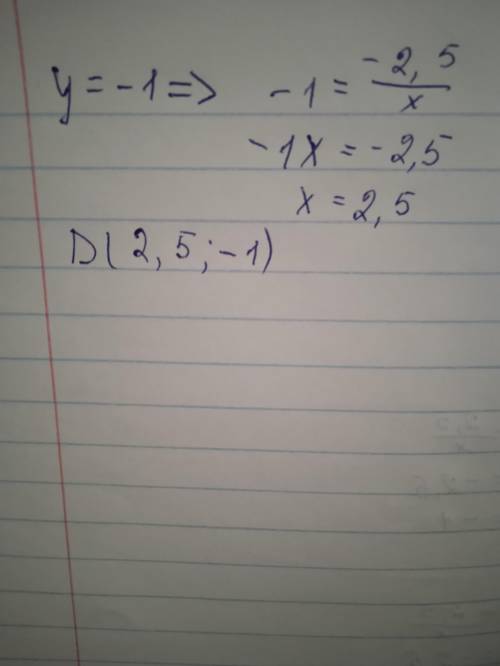 y = -1 => -1 = -2,5/x
-1x = -2,5
x = 2,5
D(2,5; -1)